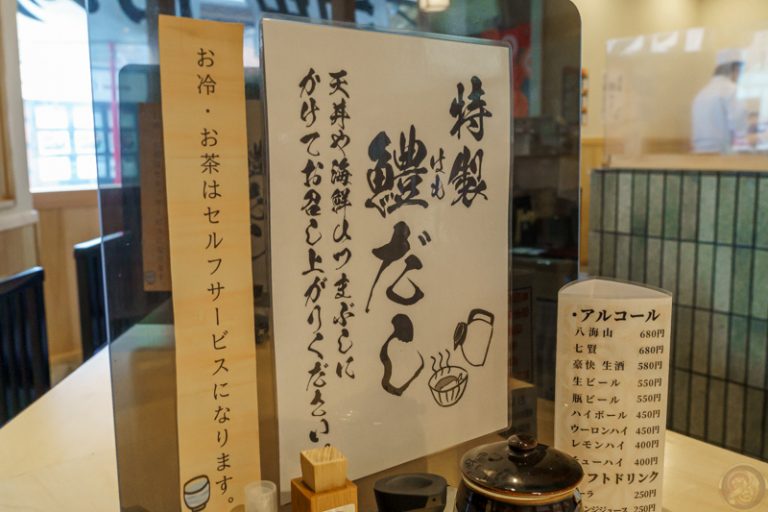 お冷・お茶はセルフサービスになります。
特製
鱧だし
はも
天丼や海鮮ひつまぶしに
かけてお召し上がりください。
・アルコール
八海山 680円
七賢 680円
豪快 生酒 580円
生ビール 550円
瓶ビール 550円
ハイボール 450円
ウーロンハイ 450円
レモンハイ 400円
チューハイ 400円
フトドリンク
ラ 250円
ンジジュース 250円